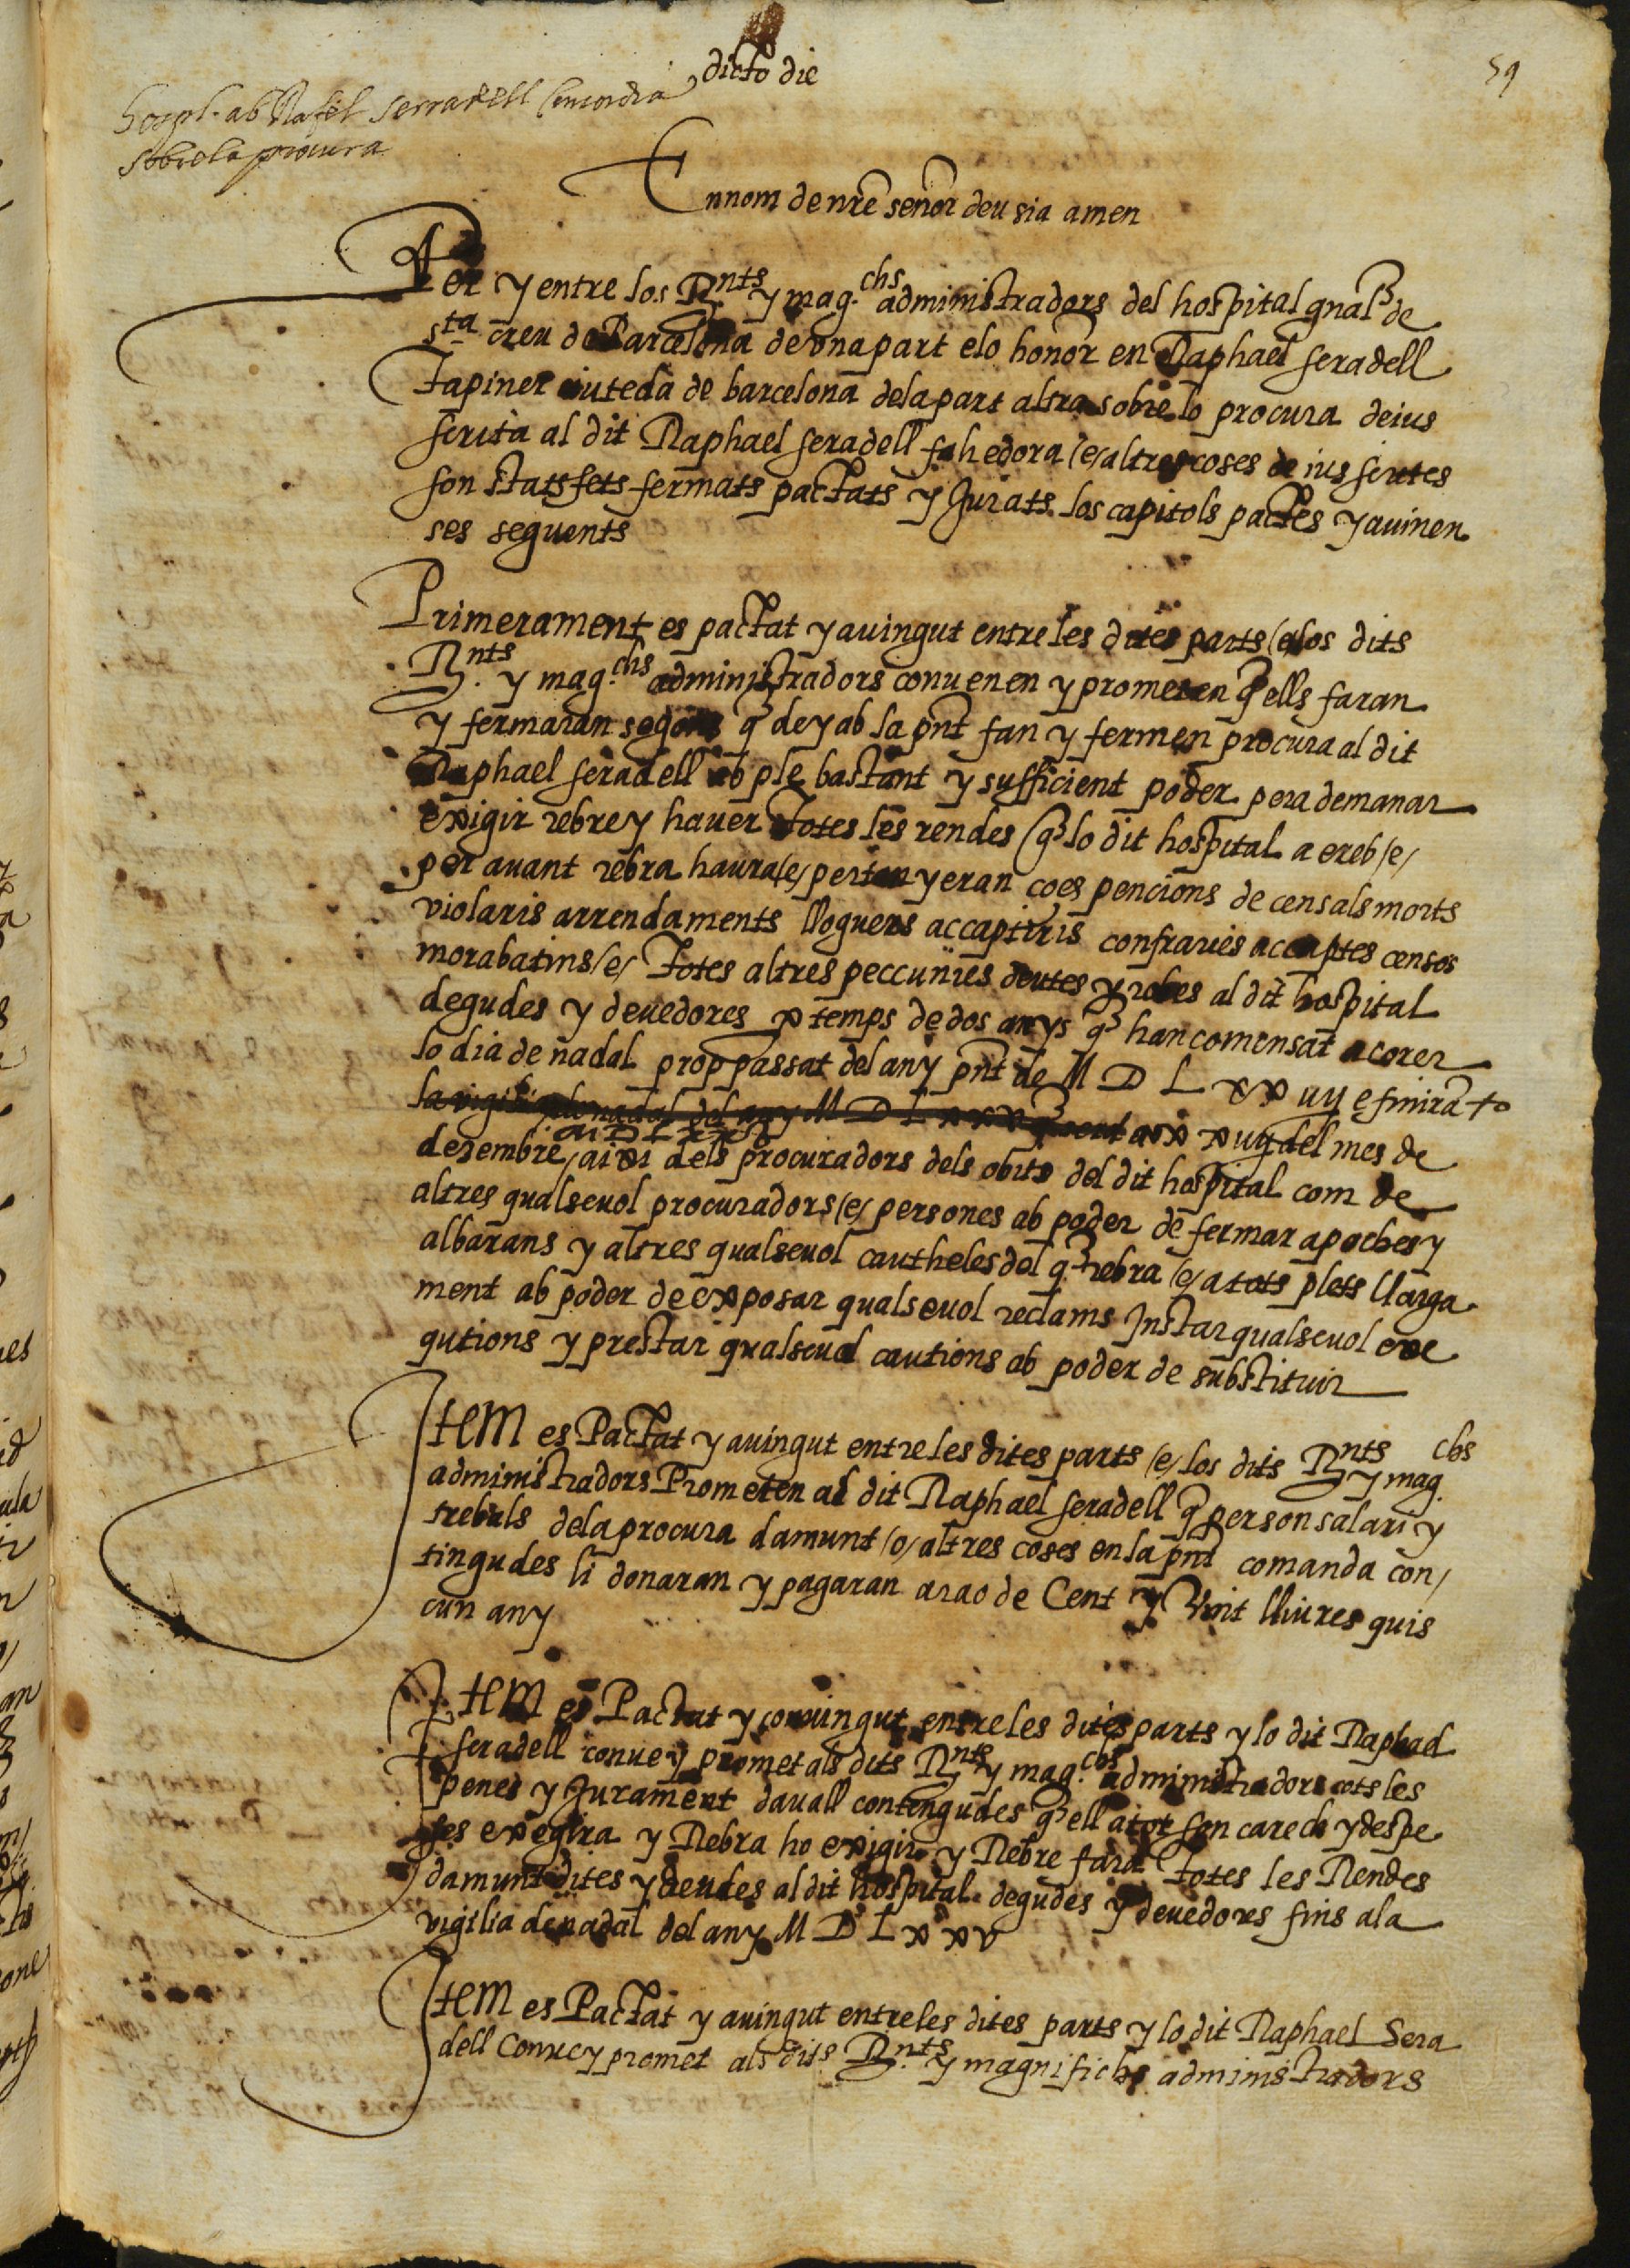 dicto die
59
hospl. ab Rafel Serradell Concordia
sobre la procura
En nom de nre señor deu sia amen
Per y entre los R.nts y mag.chs administradors del hospital gnal de
sta creu de Barcelona de una part e lo honor en Raphael seradell
Tapiner ciuteda de barcelona de la part altra sobre lo procura deius
scrita al dit Raphael seradell fahedora /e/ altres coses de ius scrites
son stats fets fermats pactats y Jurats los capitols pactes y auinen
ses seguents
Primerament es pactat y auingut entre les dites parts /e/ los dits
R.nts y mag.chs administradors conuenen y prometen q ells faran
y fermaran segons q de y ab la pnt fan y fermen procura al dit
Raphael seradell ab ple bastant y sufficient poder pera demanar
exigir rebre y hauer Totes les rendes q lo dit hospital a e reb /e/
per auant rebra haura /e/ pertanyeran coes pencions de censals morts
violaris arrendaments lloguers accaptiris confraries accaptes censos
morabatins /e/ Totes altres peccunies deutes y robes al dit hospital
degudes y deuedores p temps de dos anys q han comensat a correr
lo dia de nadal prop passat del any pnt de M D L xx iiij e finira +
la vigilia de nadal del any M D L xxv a xxiiij del mes de
M D L xxv
dezembre, aixi dels procuradors dels obits del dit hospital com de
altres qualseuol procuradors /e/ persones ab poder de fermar apoches y
albarans y altres qualseuol cautheles del q rebra /e/ a tots plets llarga
ment ab poder de exposar qualseuol reclams Instar qualseuol exe
qutions y prestar qualseuol cautions ab poder de substituir
Item es Pactat y auingut entre les dites parts /e/ los dits R.nts y mag.chs
administradors Prometen al dit Raphael seradell q per son salari y
trebals de la procura damunt /o/ altres coses en la pnt comanda con/
tingudes li donaran y pagaran a rao de Cent y Vint lliures quis
cun any
Item es Pactat y conuingut entre les dites parts y lo dit Raphael
seradell conue y promet als dits R.nts y mag.chs administradors sots les
penes y Jurament dauall contengudes q ell a tot son carech y despe
ses exegira y Rebra ho exigir y Rebre fara Totes les Rendes
damunt dites y deutes al dit hospital degudes y deuedors fins a la
vigilia de nadal del any M D L xxv
Item es Pactat y auingut entre les dites parts y lo dit Raphael Sera
dell Conue y promet als dits R.nts y magnifichs administradors